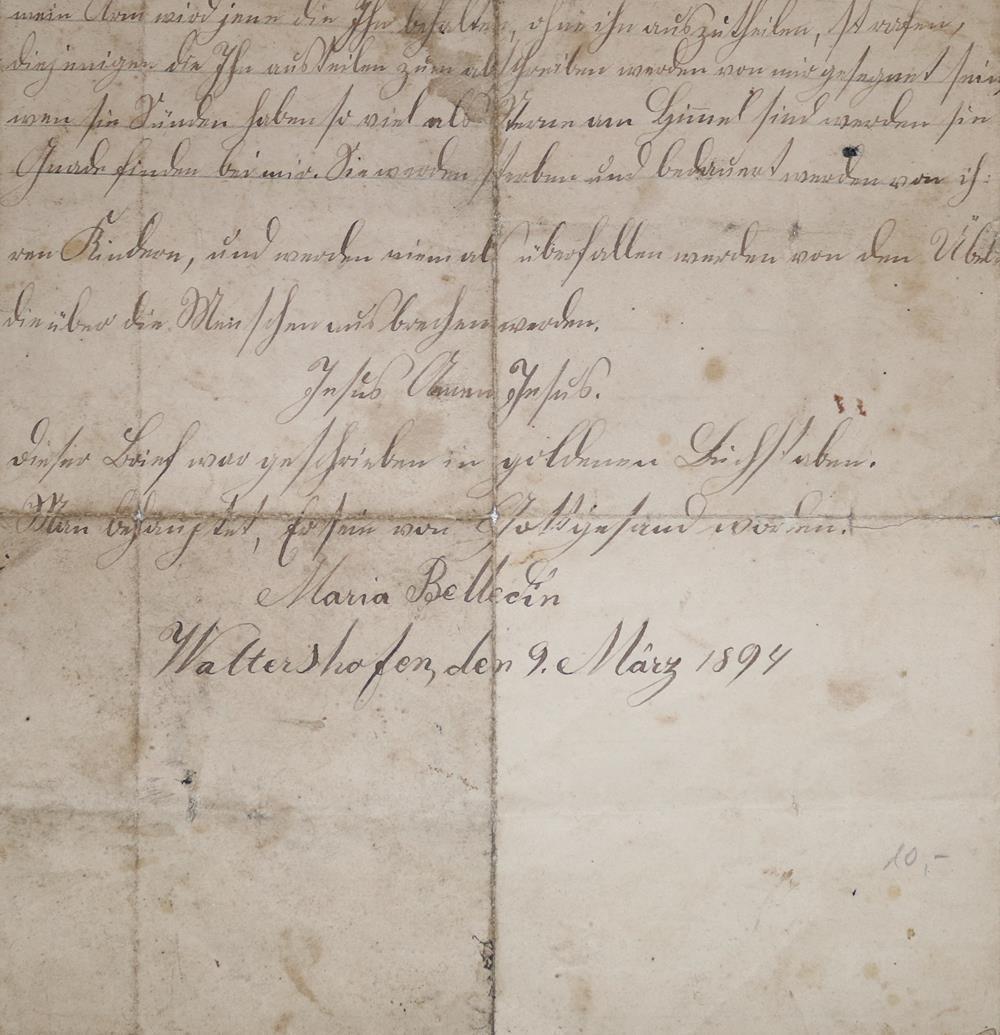 mein Arm wird jene die Ihn behalten, ohne ihn auszutheilen, strafen,
diejenigen die Ihn austeilen zum abschreiben werden von mir gesegnet sein,
wen sie Sünden haben so viel als Sterne am Him̅el sind werden sie
Gnade finden bei mir. Sie werden sterben und bedauert werden von ih:
ren Kindern, und werden niemals überfallen werden von den Übeln
die über die Menschen ausbrechen werden.
Jesus Amen Jesus.
Dieser Brief war geschrieben in goldenen Buchstaben.
Man behauptet, Er seie von Gott gesand worden.
Maria Belledin
Waltershofen, den 9. März 1894
10,-